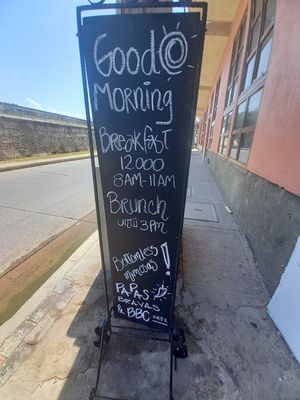 Good
Morning
Breakfast
12.000
8AM-11AM
Brunch
until 3PM
Bottomless
Mimosas!
PAPAS
BRAVAS
& BBC